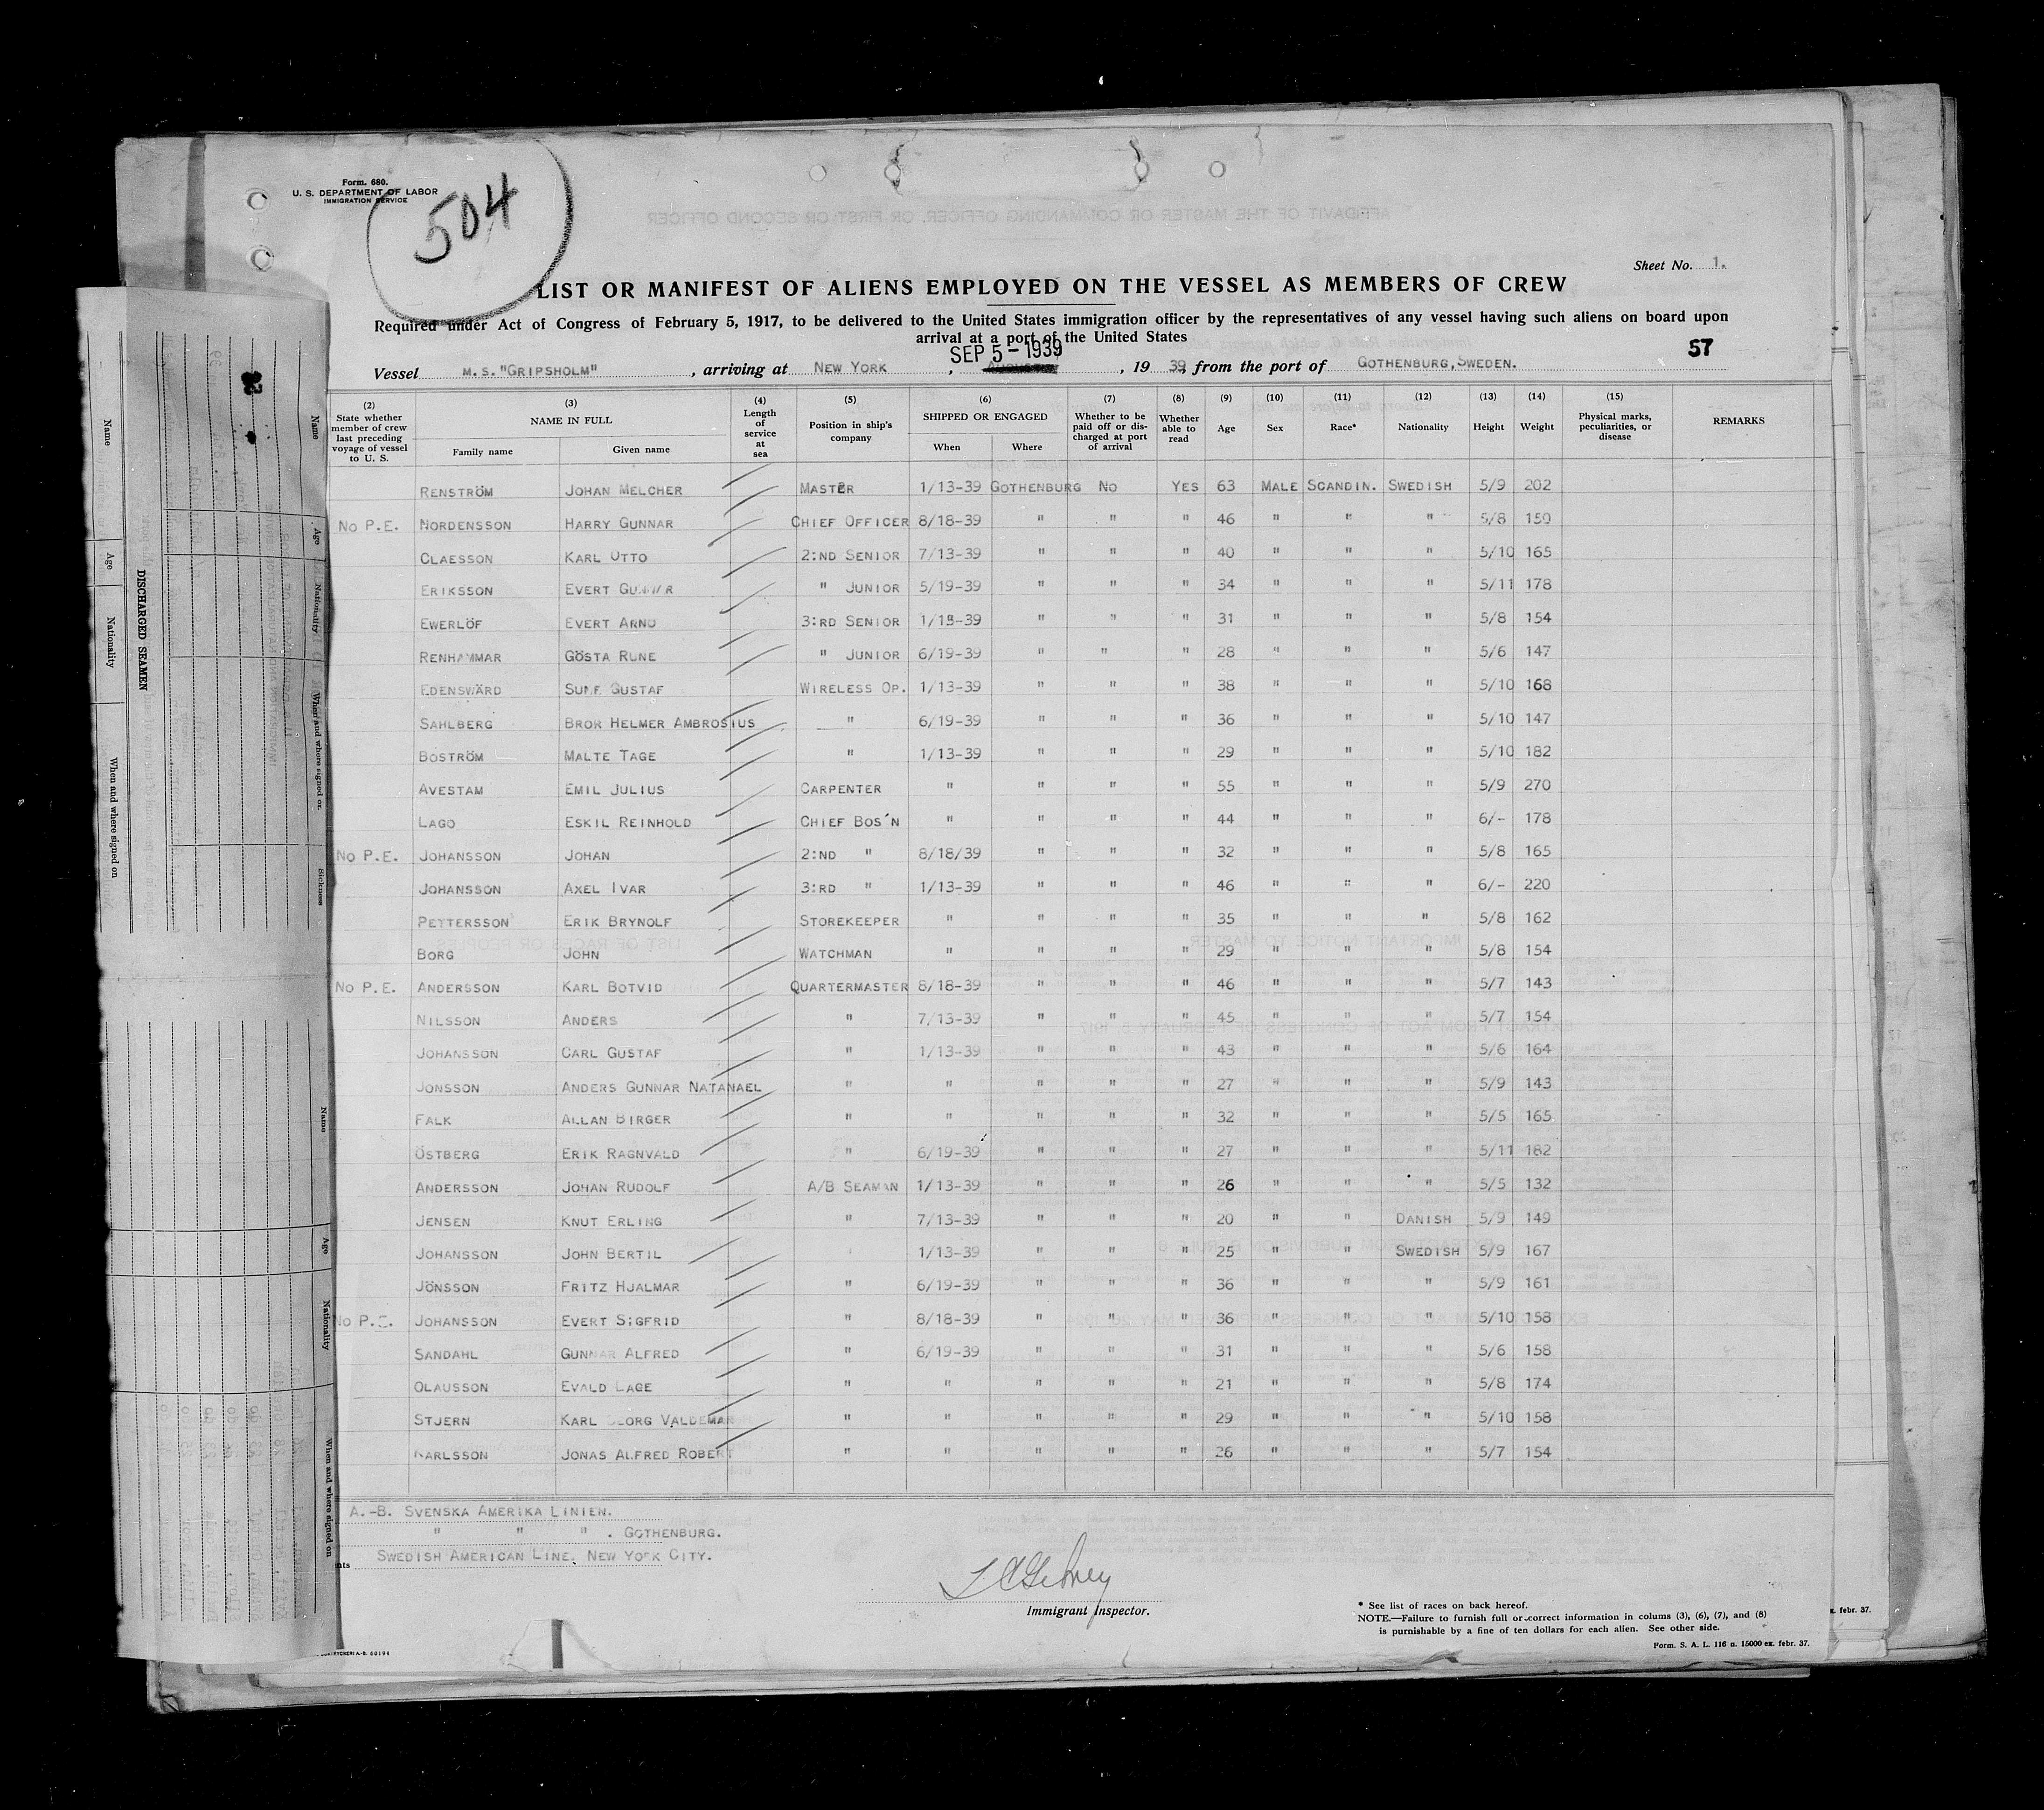 Form. 680.
U. S. DEPARTMENT OF LABOR
IMMIGRATION SERVICE
504
Sheet No. 1.
LIST OR MANIFEST OF ALIENS EMPLOYED ON THE VESSEL AS MEMBERS OF CREW
Required under Act of Congress of February 5, 1917, to be delivered to the United States immigration officer by the representatives of any vessel having such aliens on board upon
arrival at a port of the United States
SEP 5 - 1939
57
Vessel M.S. "GRIPSHOLM", arriving at NEW YORK, , 19 39, from the port of GOTHENBURG, SWEDEN.
(2) State whether member of crew last preceding voyage of vessel to U. S. (3) NAME IN FULL Family name Given name (4) Length of service at sea (5) Position in ship's company (6) SHIPPED OR ENGAGED When Where (7) Whether to be paid off or discharged at port of arrival (8) Whether able to read (9) Age (10) Sex (11) Race* (12) Nationality (13) Height (14) Weight (15) Physical marks, peculiarities, or disease REMARKS
RENSTRÖM JOHAN MELCHER MASTER 1/13-39 GOTHENBURG NO YES 63 MALE SCANDIN. SWEDISH 5/9 202
NO P.E. NORDENSSON HARRY GUNNAR CHIEF OFFICER 8/18-39 " " " 46 " " " 5/8 150
CLAESSON KARL OTTO 2:ND SENIOR 7/13-39 " " " 40 " " " 5/10 165
ERIKSSON EVERT GUNNAR " JUNIOR 5/19-39 " " " 34 " " " 5/11 178
EWERLÖF EVERT ARNO 3:RD SENIOR 1/13-39 " " " 31 " " " 5/8 154
RENHAMMAR GÖSTA RUNE " JUNIOR 6/19-39 " " " 28 " " " 5/6 147
EDENSWÄRD SUNE GUSTAF WIRELESS OP. 1/13-39 " " " 38 " " " 5/10 168
SAHLBERG BROR HELMER AMBROSIUS " 6/19-39 " " " 36 " " " 5/10 147
BOSTRÖM MALTE TAGE " 1/13-39 " " " 29 " " " 5/10 182
AVESTAM EMIL JULIUS CARPENTER " " " " 55 " " " 5/9 270
LAGO ESKIL REINHOLD CHIEF BOS'N " " " " 44 " " " 6/- 178
NO P.E. JOHANSSON JOHAN 2:ND " 8/18/39 " " " 32 " " " 5/8 165
JOHANSSON AXEL IVAR 3:RD " 1/13-39 " " " 46 " " " 6/- 220
PETTERSSON ERIK BRYNOLF STOREKEEPER " " " " 35 " " " 5/8 162
BORG JOHN WATCHMAN " " " " 29 " " " 5/8 154
NO P.E. ANDERSSON KARL BOTVID QUARTERMASTER 8/18-39 " " " 46 " " " 5/7 143
NILSSON ANDERS " 7/13-39 " " " 45 " " " 5/7 154
JOHANSSON CARL GUSTAF " 1/13-39 " " " 43 " " " 5/6 164
JONSSON ANDERS GUNNAR NATANAEL " " " " " 27 " " " 5/9 143
FALK ALLAN BIRGER " " " " " 32 " " " 5/5 165
ÖSTBERG ERIK RAGNVALD " 6/19-39 " " " 27 " " " 5/11 182
ANDERSSON JOHAN RUDOLF A/B SEAMAN 1/13-39 " " " 26 " " " 5/5 132
JENSEN KNUT ERLING " 7/13-39 " " " 20 " " DANISH 5/9 149
JOHANSSON JOHN BERTIL 1/13-39 " " " 25 " " SWEDISH 5/9 167
JÖNSSON FRITZ HJALMAR " 6/19-39 " " " 36 " " " 5/9 161
NO P.E. JOHANSSON EVERT SIGFRID " 8/18-39 " " " 36 " " " 5/10 158
SANDAHL GUNNAR ALFRED " 6/19-39 " " " 31 " " " 5/6 158
OLAUSSON EVALD LAGE " " " " " 21 " " " 5/8 174
STJERN KARL GEORG VALDEMAR " " " " " 29 " " " 5/10 158
KARLSSON JONAS ALFRED ROBERT " " " " " 26 " " " 5/7 154
A.-B. SVENSKA AMERIKA LINIEN.
" " " . GOTHENBURG.
SWEDISH AMERICAN LINE, NEW YORK CITY.
Immigrant Inspector.
* See list of races on back hereof.
NOTE.—Failure to furnish full or correct information in colums (3), (6), (7), and (8)
is punishable by a fine of ten dollars for each alien. See other side.
Form. S. A. L. 116 n. 15000 ex. febr. 37.
febr. 37.
DISCHARGED SEAMEN
Name Age Nationality When and where signed on
Name Age Nationality When and where signed on Sickness
Name Age Nationality When and where signed on